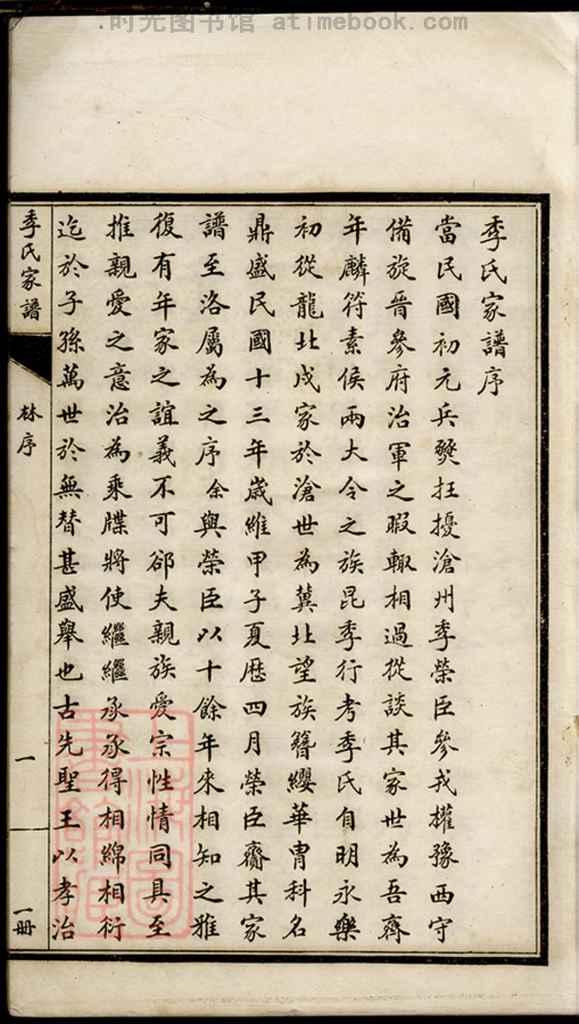 .时光图书馆 atimebook.com
季氏家譜序
當民國初元兵燹抂擾滄州季榮臣參戎權豫西守
備旋晉參府治軍之暇輒相過從談其家世為吾齊
年麟符素侯兩大令之族昆季行考季氏自明永樂
初從龍北戍家於滄世為冀北望族簪纓華胄科名
鼎盛民國十三年歲維甲子夏曆四月榮臣齎其家
譜至洛屬為之序余與榮臣以十餘年來相知之雅
復有年家之誼義不可郤夫親族愛宗性情同具至
推親愛之意治為乘牒將使繼繼承承得相綿相衍
迄於子孫萬世於無替甚盛舉也古先聖王以孝治
季氏家譜
林序
一
一冊